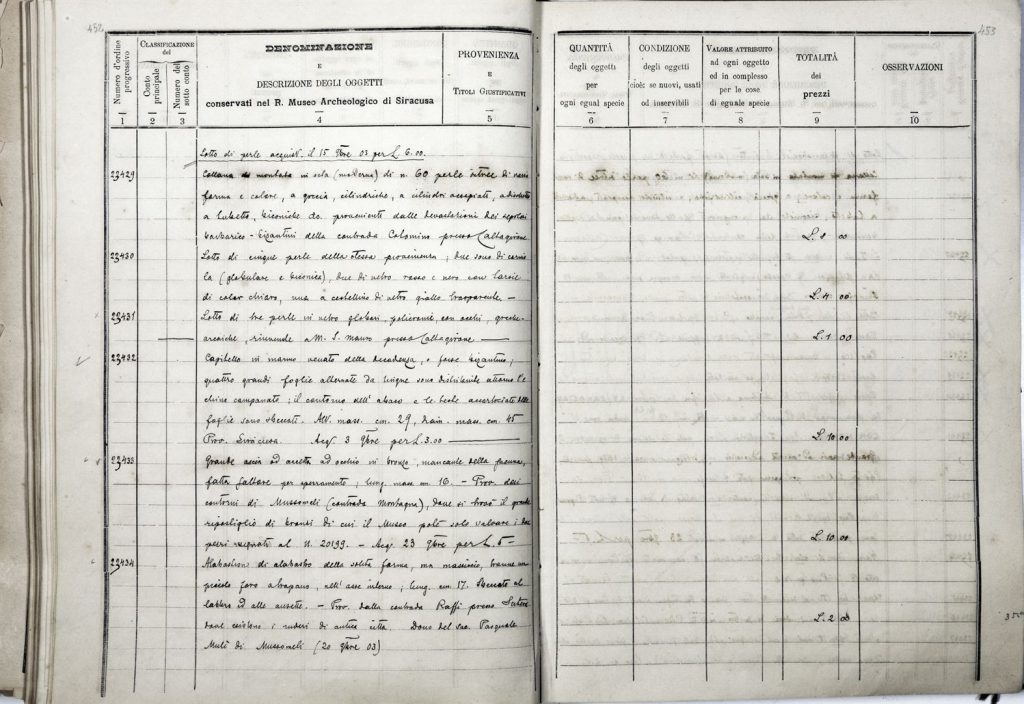 452
Numero d'ordine progressivo
CLASSIFICAZIONE del
Conto principale
Numero del sotto conto
DENOMINAZIONE
E
DESCRIZIONE DEGLI OGGETTI
conservati nel R. Museo Archeologico di Siracusa
PROVENIENZA
E
TITOLI GIUSTIFICATIVI
1 2 3 4 5
Lotto di perle acquist. il 15 9bre 03 per L. 6.00.
23429 Collana montata in seta (moderna) di n. 60 perle vitree di varia
forma e colore, a goccia, cilindriche, a cilindri accoppiati, a dischetto
a tubetto, biconiche &c. provenienti dalle devastazioni dei sepolcri
barbarico-bizantini della contrada Colomino presso Caltagirone
23430 Lotto di cinque perle della stessa provenienza; due sono di cornio
la (globulare e biconica), due di vetro rosso e nero con fascie
di color chiaro, una a cestellino di vetro giallo trasparente. —
23431 Lotto di tre perle in vetro globari, policrome, con occhi, greche-
arcaiche, rinvenute a M. S. Mauro presso Caltagirone —
23432 Capitello in marmo venato della decadenza, o forse bizantino;
quattro grandi foglie alternate da lingue sono distribuite attorno l'e
chino campanato; il contorno dell'abaco e le teste accartocciate delle
foglie sono sbeccati. Alt. mass. cm. 29, diam. mass. cm. 45
Prov. Siracusa. Acq. 3 9bre per L. 3.00 —
23433 Grande ascia ad accetta ad occhio in bronzo, mancante della penna,
fatta saltare per speramento; lung. mass cm. 16. — Prov. dai
contorni di Mussomeli (contrada Montagna), dove si trovò il grande
ripostiglio di bronzi di cui il Museo potè solo salvare i due
pezzi segnati al N. 20199. — Acq. 23 9bre per L. 5 —
23434 Alabastron di alabastro della solita forma, ma massiccio, tranne un
piccolo foro a trapano, nell'asse interno; lung. cm. 17. Sbeccato al
labbro ed alle ansette. — Prov. dalla contrada Raffi presso Sutera
dove esistono i ruderi di antica città. Dono del sac. Pasquale
Mulè di Mussomeli (20 9bre 03)
453
QUANTITÀ
degli oggetti
per
ogni egual specie
CONDIZIONE
degli oggetti
cioè: se nuovi, usati
od inservibili
VALORE ATTRIBUITO
ad ogni oggetto
ed in complesso
per le cose
di eguale specie
TOTALITÀ
dei
prezzi
OSSERVAZIONI
6 7 8 9 10
L. 4 00
L. 1 00
L. 10.00
L. 10.00
L. 2 00